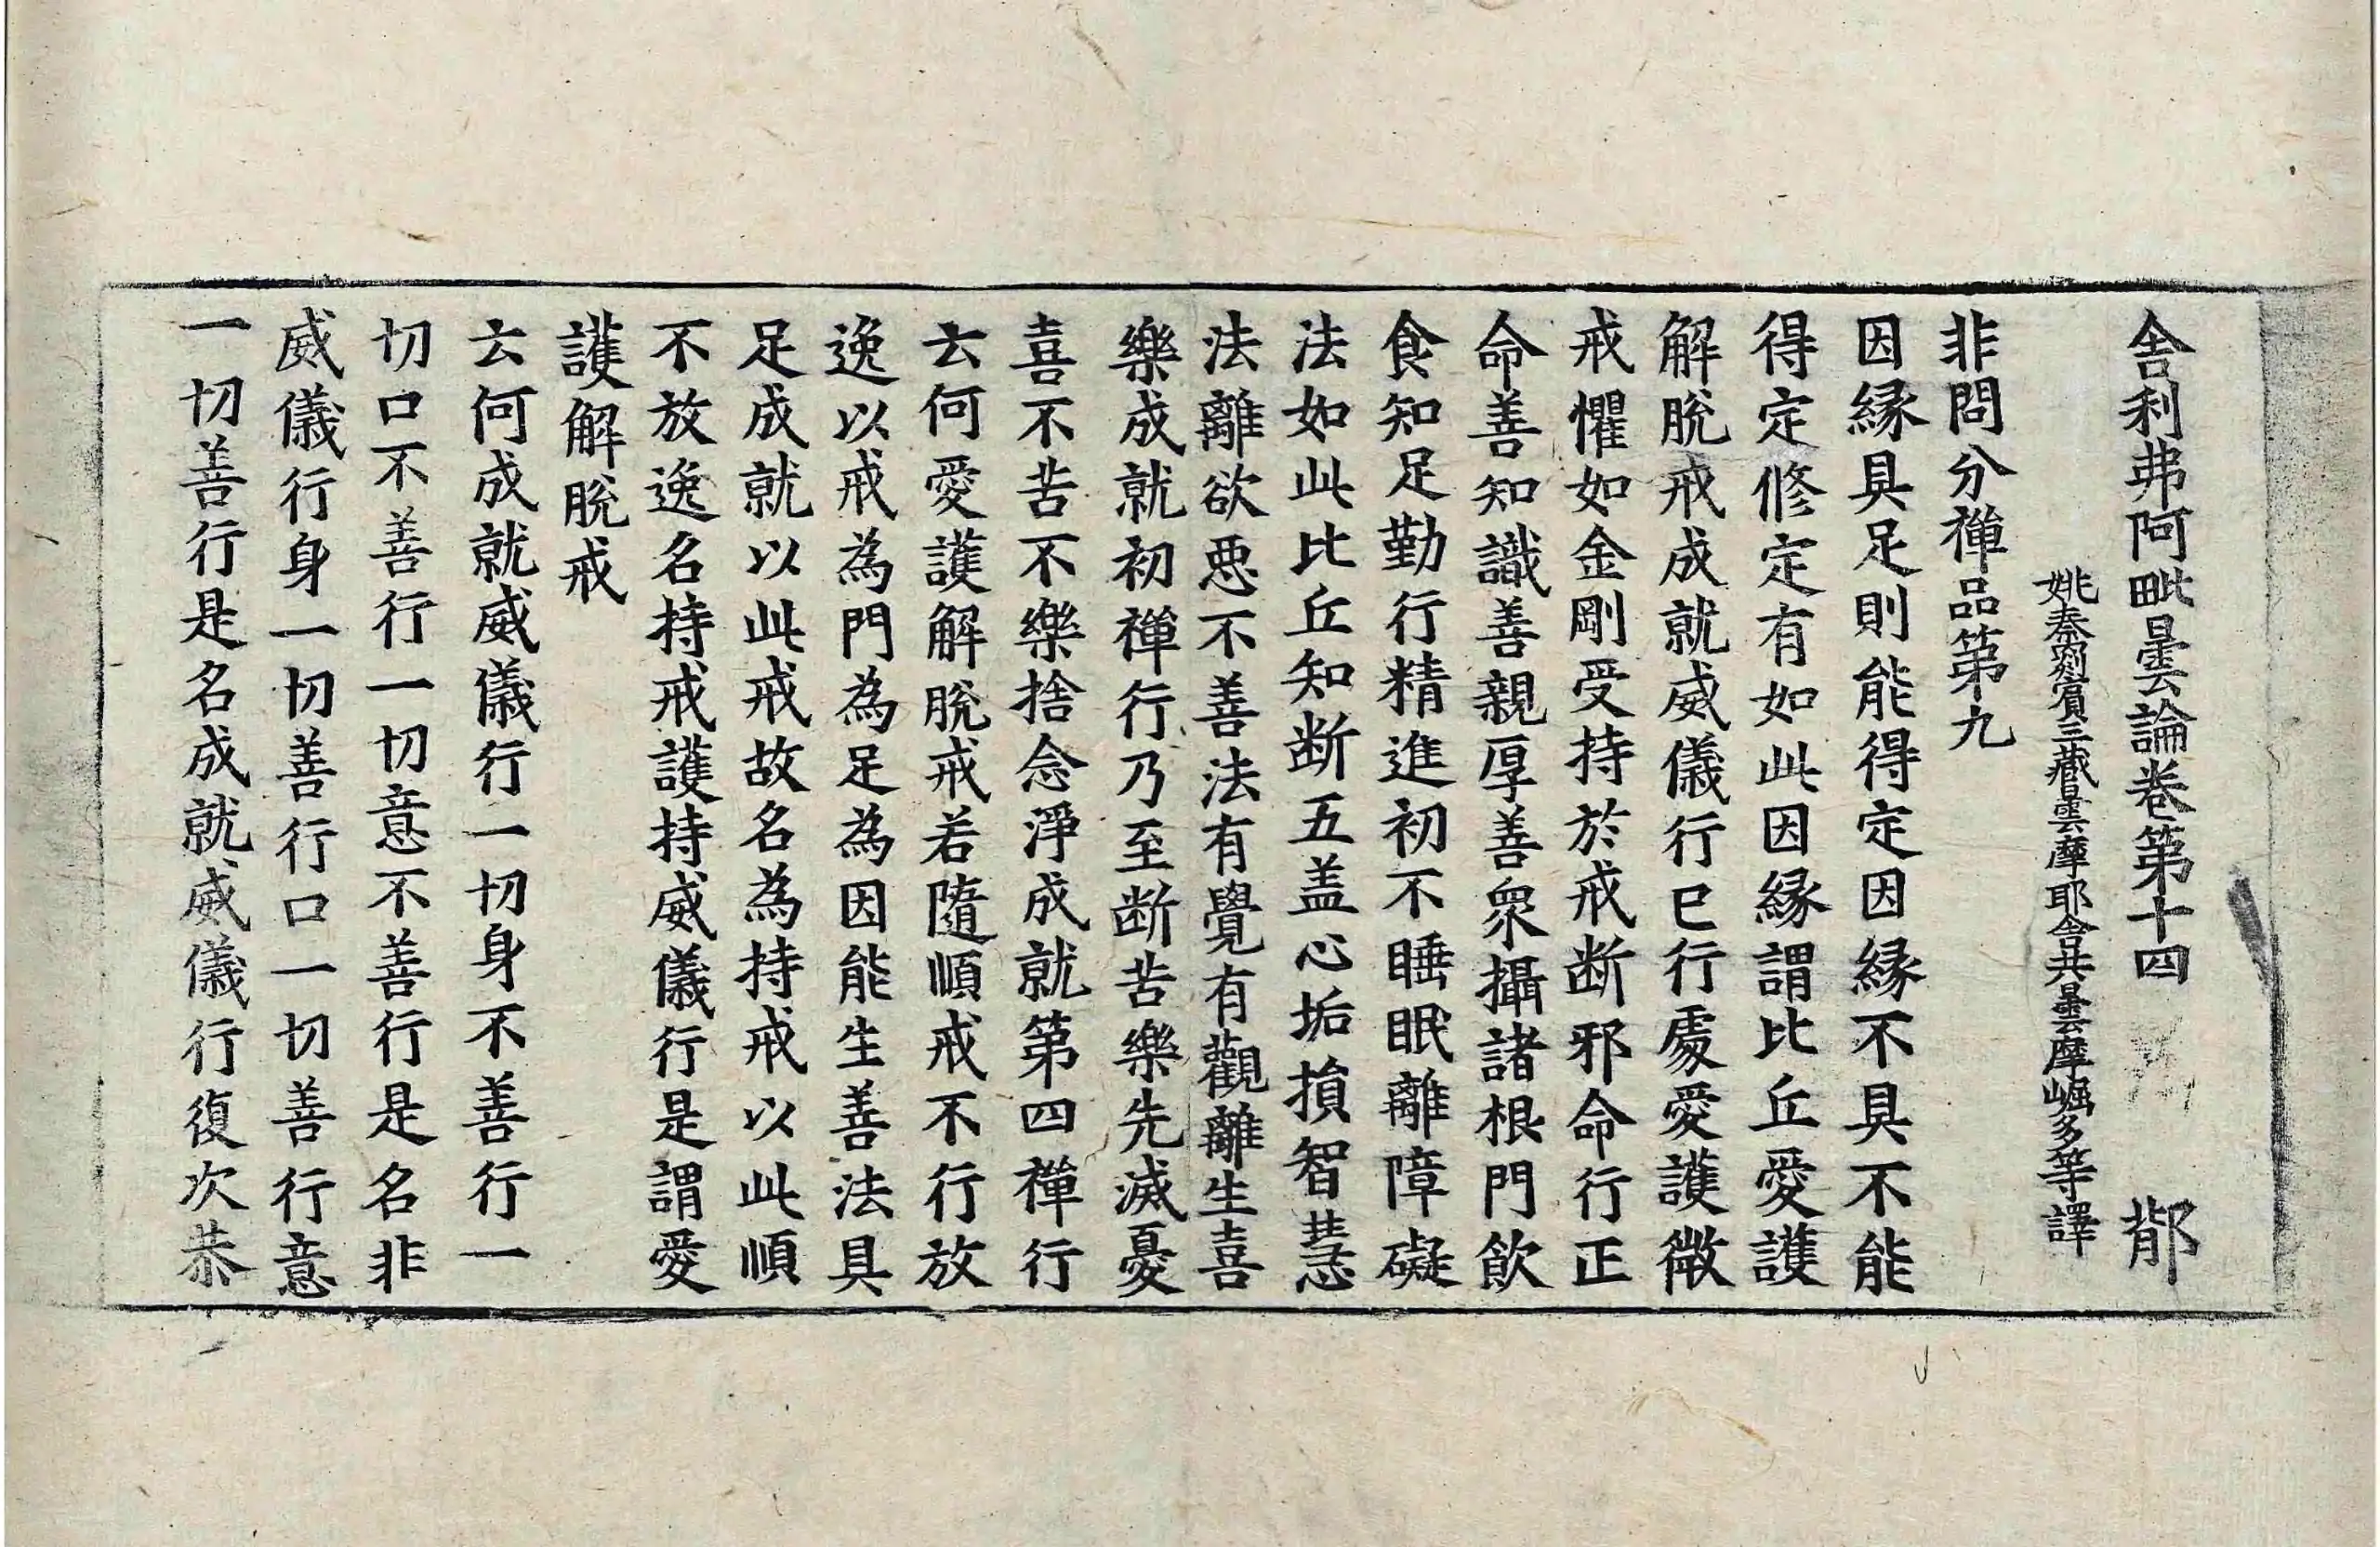 舍利弗阿毗曇論卷第十四 鄁
姚秦罽賓三藏曇摩耶舍共曇摩崛多等譯
非問分禪品第九
因緣具足則能得定因緣不具不能
得定修定有如此因緣謂比丘愛護
解脫戒成就威儀行已行處愛護微
戒懼如金剛受持於戒断邪命行正
命善知識善親厚善衆攝諸根門飲
食知足勤行精進初不睡眠離障礙
法如此比丘知断五盖心垢損智慧
法離欲惡不善法有覺有觀離生喜
樂成就初禪行乃至断苦樂先滅憂
喜不苦不樂捨念淨成就第四禪行
云何愛護解脫戒若隨順戒不行放
逸以戒為門為足為因能生善法具
足成就以此戒故名為持戒以此順
不放逸名持戒護持威儀行是謂愛
護解脫戒
云何成就威儀行一切身不善行一
切口不善行一切意不善行是名非
威儀行身一切善行口一切善行意
一切善行是名成就威儀行復次恭